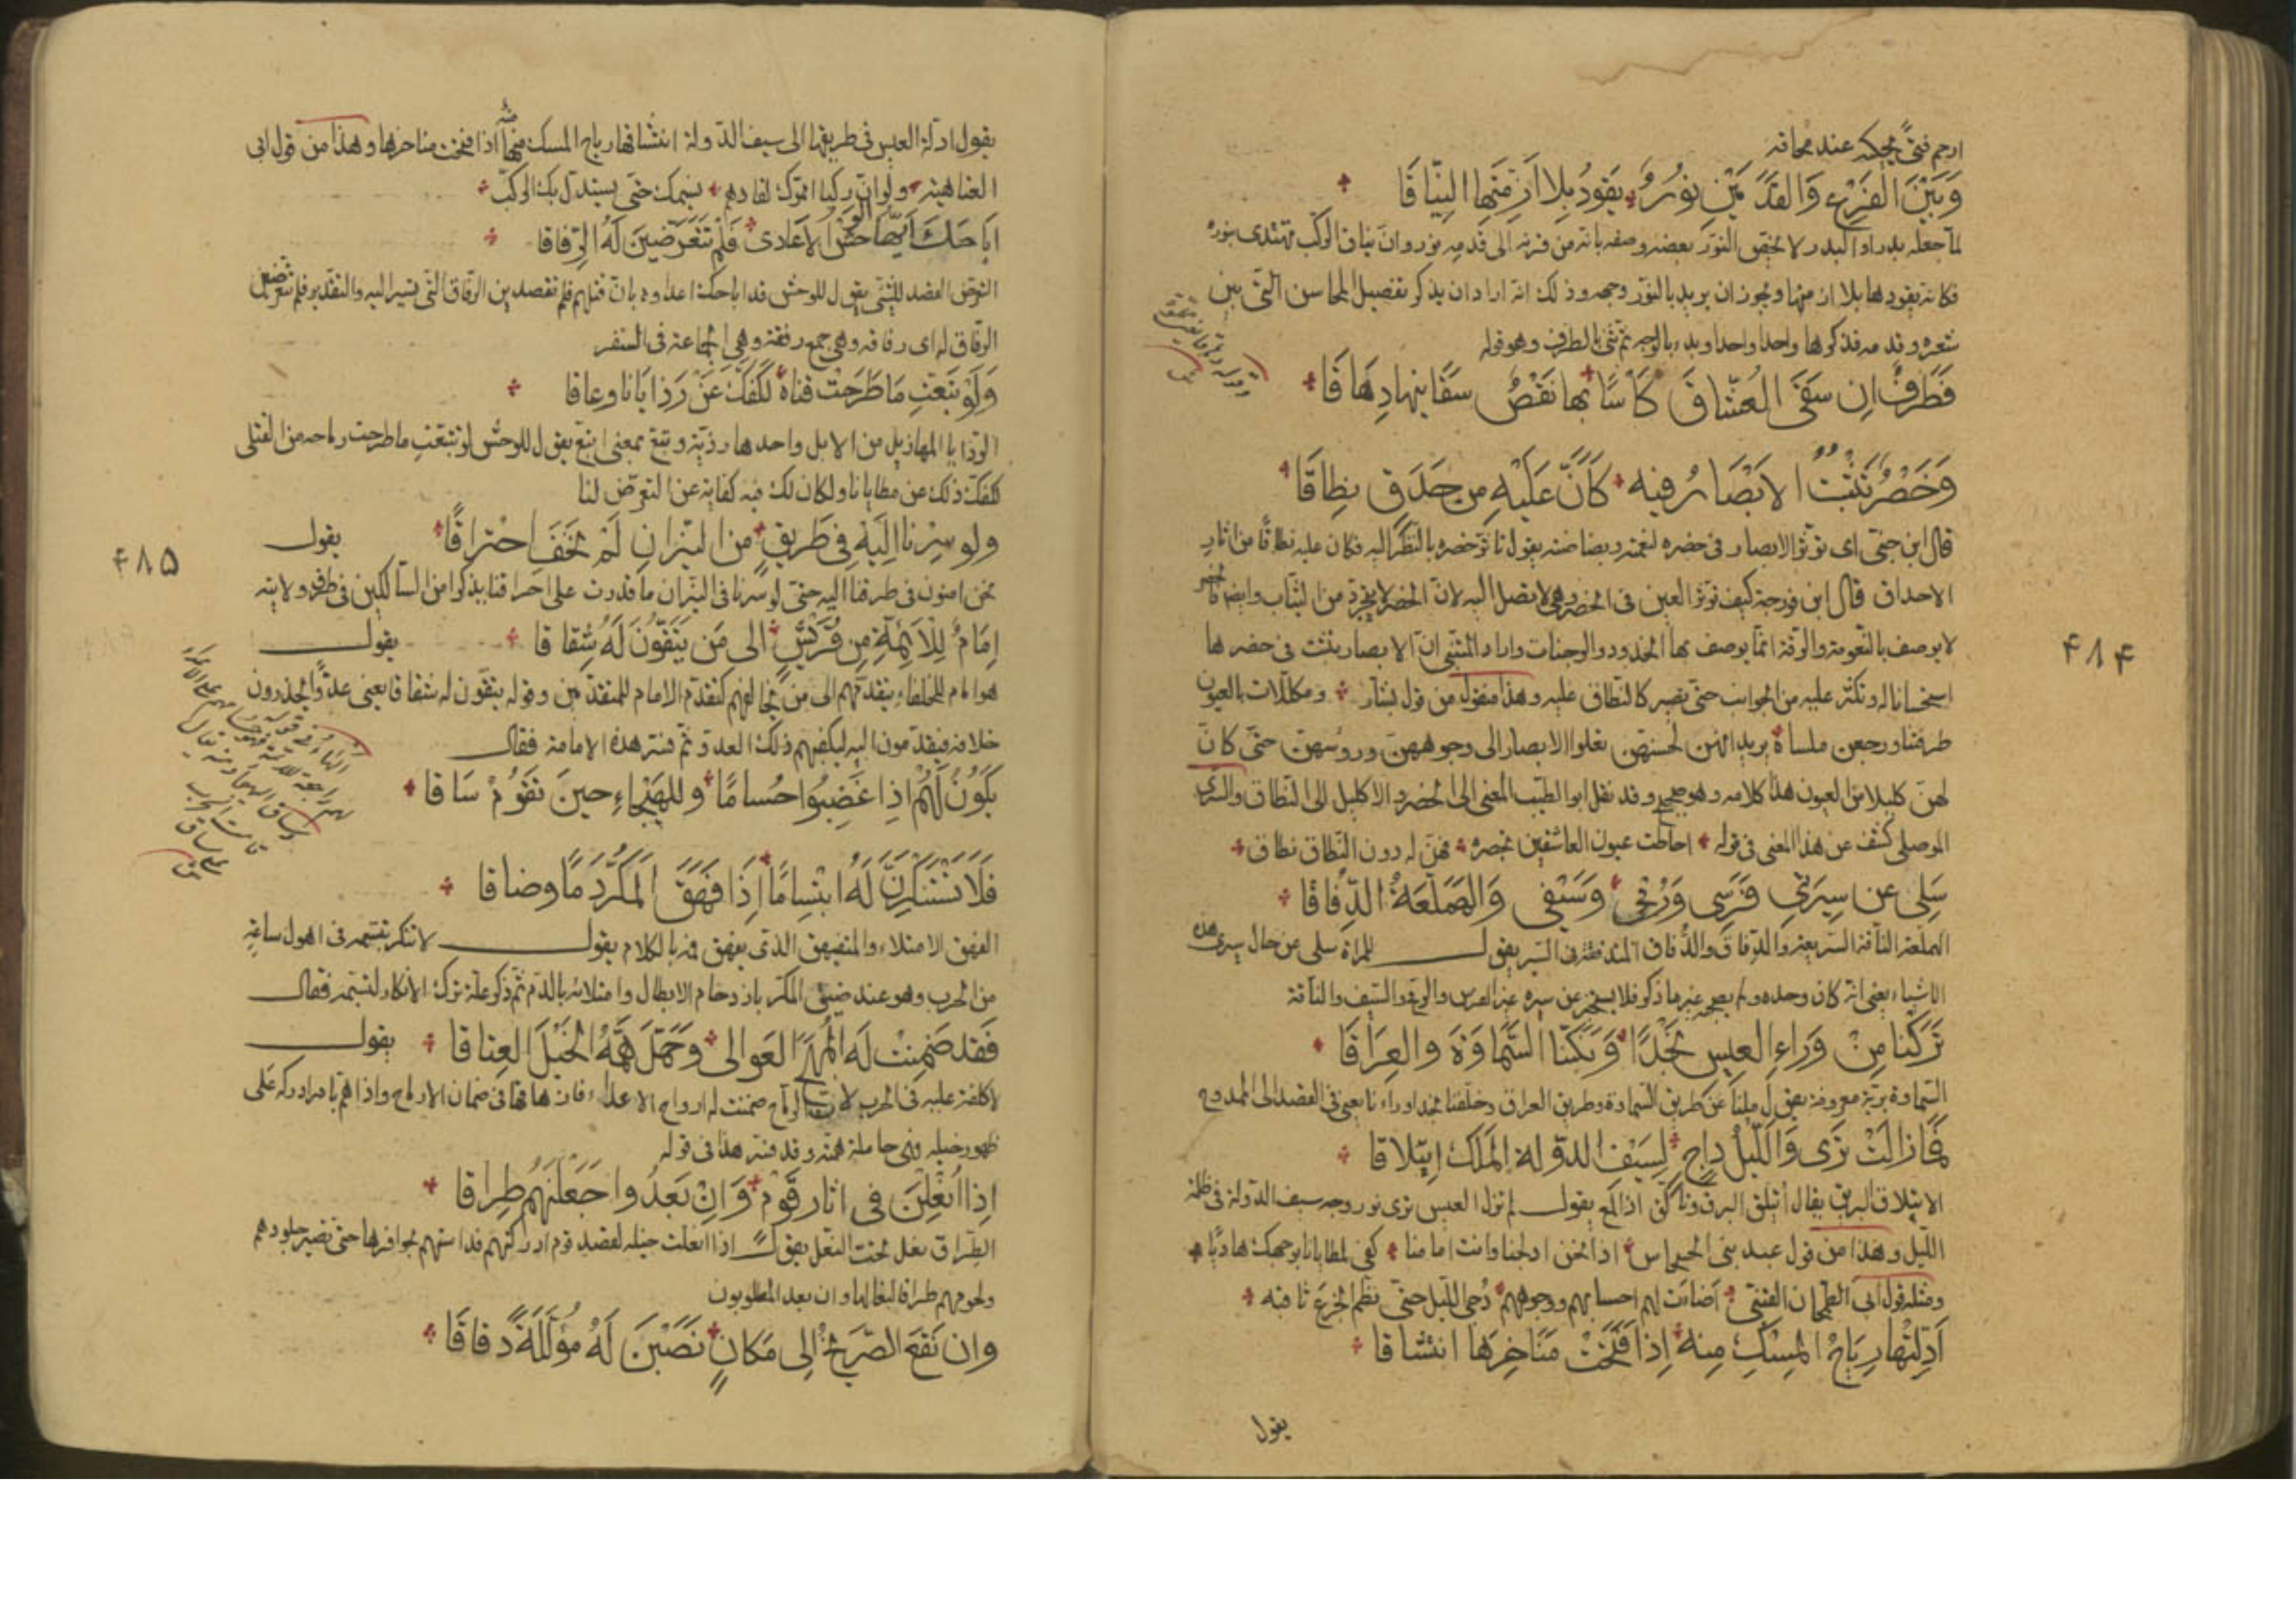 ارحم فتىً يحكيه عند محاقه
وَبَيْنَ الفَرْعِ وَالقَدَمَيْنِ نورٌ يَقودُ بِلا اَزِمَّتِها النِّياقَا
لما جعله بدرا والبدر لا يختص النور بعضه وصفه بانه من فرقه الى قدمه نور وان نياق الركب تهتدى بنوره
فكانه يقودها بلا ازمتها ويجوز ان يريد بالنور وجهه وذلك انه اراد ان يذكر تفصيل المحاسن التى بين
شعره وقدمه فذكرها واحدا واحدا وبدء بالوجه ثم ثنى بالطرف وهو قوله
وَطَرفٌ اِن سَقَى العُشّاقَ كَاسًا بها نَقصٌ سَقانيها دِهَاقَا
وَخَصْرٌ تَثبُتُ الابْصَارُ فيه كَاَنَّ عَلَيْهِ مِن حَدَقٍ نِطاقَا
قال ابن جنى اى تؤثر الابصار فى خصره لنعمته وبضاضته يقول تاثر خصره بالنظر اليه فكان عليه نطاقا من اثار
الاحداق قال ابن فورجة كيف تؤثر العين فى الخصر وهى لا تصل اليه لان الخصر لا يتجرد من الثياب وايضا فالخصر
لا يوصف بالنعومة والرقة انما يوصف بها الخدود والوجنات واراد المتنبى ان الابصار تثبت فى خصرها
استحسانا له وتكثر عليه من الجوانب حتى تصير كالنطاق عليه وهذا منقول من قول بشار ومكللات بالعيون
طرقننا ورجعن ملسا يريد انهن لحسنهن تعلوا الابصار الى وجوههن ورؤسهن حتى كان
لهن كليلا من العيون هذا كلامه وهو صحيح وقد نقل ابو الطيب المعنى الى الخصر والاكليل الى النطاق والسرى
الموصلى كشف عن هذا المعنى فى قوله احاطت عيون العاشقين بخصره فهن له دون النطاق نطاق
سَلِى عن سِيرَتى فَرَسى وَرُمْحى وَسَيْفى وَالهَمَلَّعَةَ الدِّفاقَا
الهملعة الناقة السريعة والدفاق والدفاق المتدفقة فى السير يقول للمراة سلى عن حال سيرى هذه
الاشياء يعنى انه كان وحده ولم يصحبه غير ما ذكر فلا يستخبر عن سيره غير الفرس والرمح والسيف والناقة
تَرَكنا مِنْ وَراءِ العِيسِ نَجْدًا وَنَكَّبْنا السَّماوَةَ والعِرَاقَا
السماوة برية معروفة يقول ملنا عن طريق السماوة وطريق العراق وخلفنا نجدا وراءنا يعنى فى القصد الى الممدوح
فَمازالَتْ تَرى وَاللَّيلُ داجٍ لِسَيْفِ الدولة المَلِك ائتِلاقا
الائتلاق البريق يقال ائتلق البرق وتالق اذا لمع يقول لم تزل العيس ترى نور وجه سيف الدولة فى ظلمة
الليل وهذا من قول عبد بنى الحسحاس اذا نحن ادلجنا وانت امامنا كفى لمطايانا بوجهك هاديا
ومثله قول ابى الطمحان القينى اضاءت لهم احسابهم ووجوههم دجى الليل حتى نظم الجزع ثاقبه
اَدِلَّتُها رِياحُ المِسْكِ مِنه اِذا فَتَحَتْ مَنَاخِرَها انتشاقا
يقول
۴۸۴
يقول ادلة العيس فى طريقها الى سيف الدولة انتشاقها رياح المسك منه اذا فتحت مناخرها وهذا من قول ابى
العتاهية ولو ان ركبا امموك لقادهم نسيمك حتى يستدل بك الركب
اَباحَكَ اَيُّها الوَحْشُ الاَعادى فَلِمْ تَتَعَرَّضينَ لَهُ الرّفاقا
التعرض القصد للشئ يقول للوحش قد اباحك اعداءه بان قتلهم فلم تقصدين الرفاق التى تسير اليه والتقدير فلم تتعرضين
الرفاق له اى رفاقه وهى جمع رفقة وهى الجماعة فى السفر
وَلَوْ تَبَّعْتِ مَا طَرَحَت قناهُ لَكَفَّكِ عَنْ رَذايَانا وعاقا
الرذايا المهازيل من الابل واحدها رذية وتبع بمعنى اتبع يقول للوحش لو تتبعت ما طرحت رماحه من القتلى
لكفك ذلك عن مطايانا ولكان لك فيه كفاية عن التعرض لنا
ولو سِرْنا اِلَيْهِ فى طَريقٍ من النيرانِ لَمْ نَخَفِ احْتراقًا يقول
نحن امنون فى طرقنا اليه حتى لو سرنا فى النيران ما قدرت على احراقنا يذكر امن السالكين فى طرق ولايته
اِمَامٌ لِلاَئِمَّةِ مِن قُرَيشٍ الى مَن يَتَّقُونَ لَهُ شِقاقا يقول
هو امام للخلفاء يتقدمهم الى من يخالفهم كتقدم الامام للمتقدمين وقوله يتقون له شقاقا يعنى عدوا يحذرون
خلافه فيقدمون اليه ليكفيهم ذلك العدو ثم فسر هذه الامامة فقال
يَكُونُ لَهُمْ اِذا غَضِبُوا حُسامًا وللهَيْجاءِ حينَ تَقومُ سَاقا
فَلاَ تَسْتَنْكِرَنَّ لَهُ ابْتِسامًا اِذا فَهِقَ المَكَرُّ دَمًا وضاقا
الفهق الامتلاء والمتفيهق الذى يفهق فمه بالكلام يقول لا تنكر تبسمه فى اهول ساعة
من الحرب وهو عند ضيق المكر بازدحام الابطال وامتلائه بالدم ثم ذكر علة ترك الانكار لتبسمه فقال
فَقَد ضَمِنَت لَه المُهَجَ العَوالى وَحَمَّلَ هَمَّهُ الخَيْلَ العِتاقا يقول
لا كلفة عليه فى الحرب لان الرماح ضمنت له ارواح الاعداء فارتهانها فى ضمان الارماح واذا اهم بامر ادركه على
ظهور خيله فهى حاملة همه وقد فسر هذا فى قوله
اِذا اُنْعِلْنَ فى اثارِ قَوْمٍ وَاِنْ بَعُدُوا جَعَلْنَهُم طِراقا
الطراق نعل تحت النعل يقول اذا انعلت خيله لقصد قوم ادركتهم فداستهم بحوافرها حتى تصير جلودهم
ولحومهم طراقا لنعالها وان بعد المطلوبون
وان نَقَعَ الصَّريخُ اِلى مَكانٍ نَصَبْنَ لَهُ مُؤَلَّلَةً دقاقَا
۴۸۵